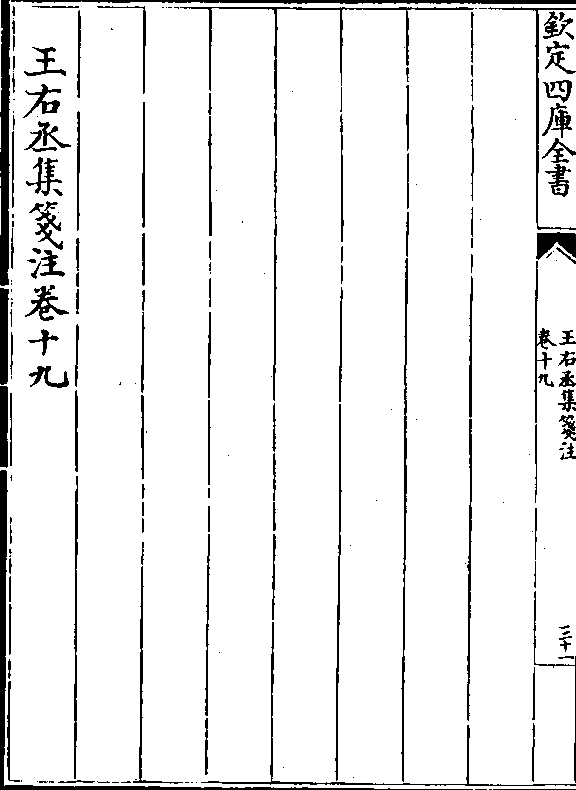 欽定四庫全書
王右丞集箋注
卷十九
三十一
王右丞集箋注卷十九